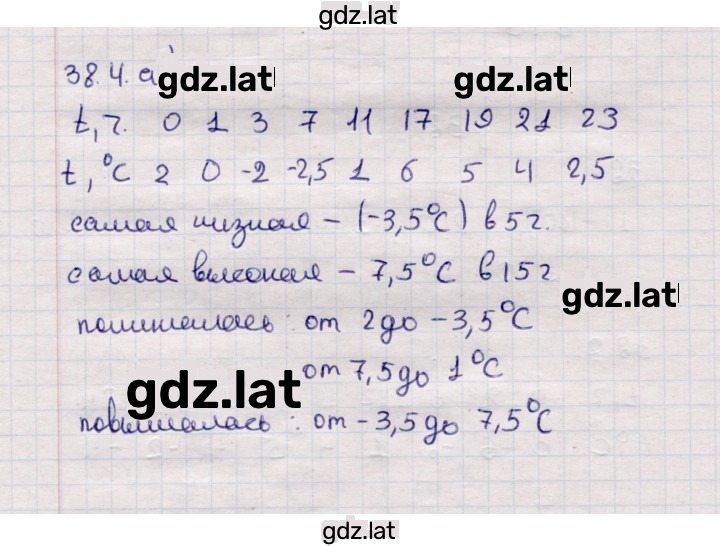 gdz.lat
38.4. а
gdz.lat gdz.lat
t,ч. 0 1 3 7 11 17 19 21 23
t,°C 2 0 -2 -2,5 1 6 5 4 2,5
самая низкая – (-3,5°C) в 5 ч.
самая высокая – 7,5°C в 15 ч
gdz.lat
понижалась: от 2 до -3,5°C
от 7,5 до 1°C
gdz.lat
повышалась: от -3,5 до 7,5°C
gdz.lat